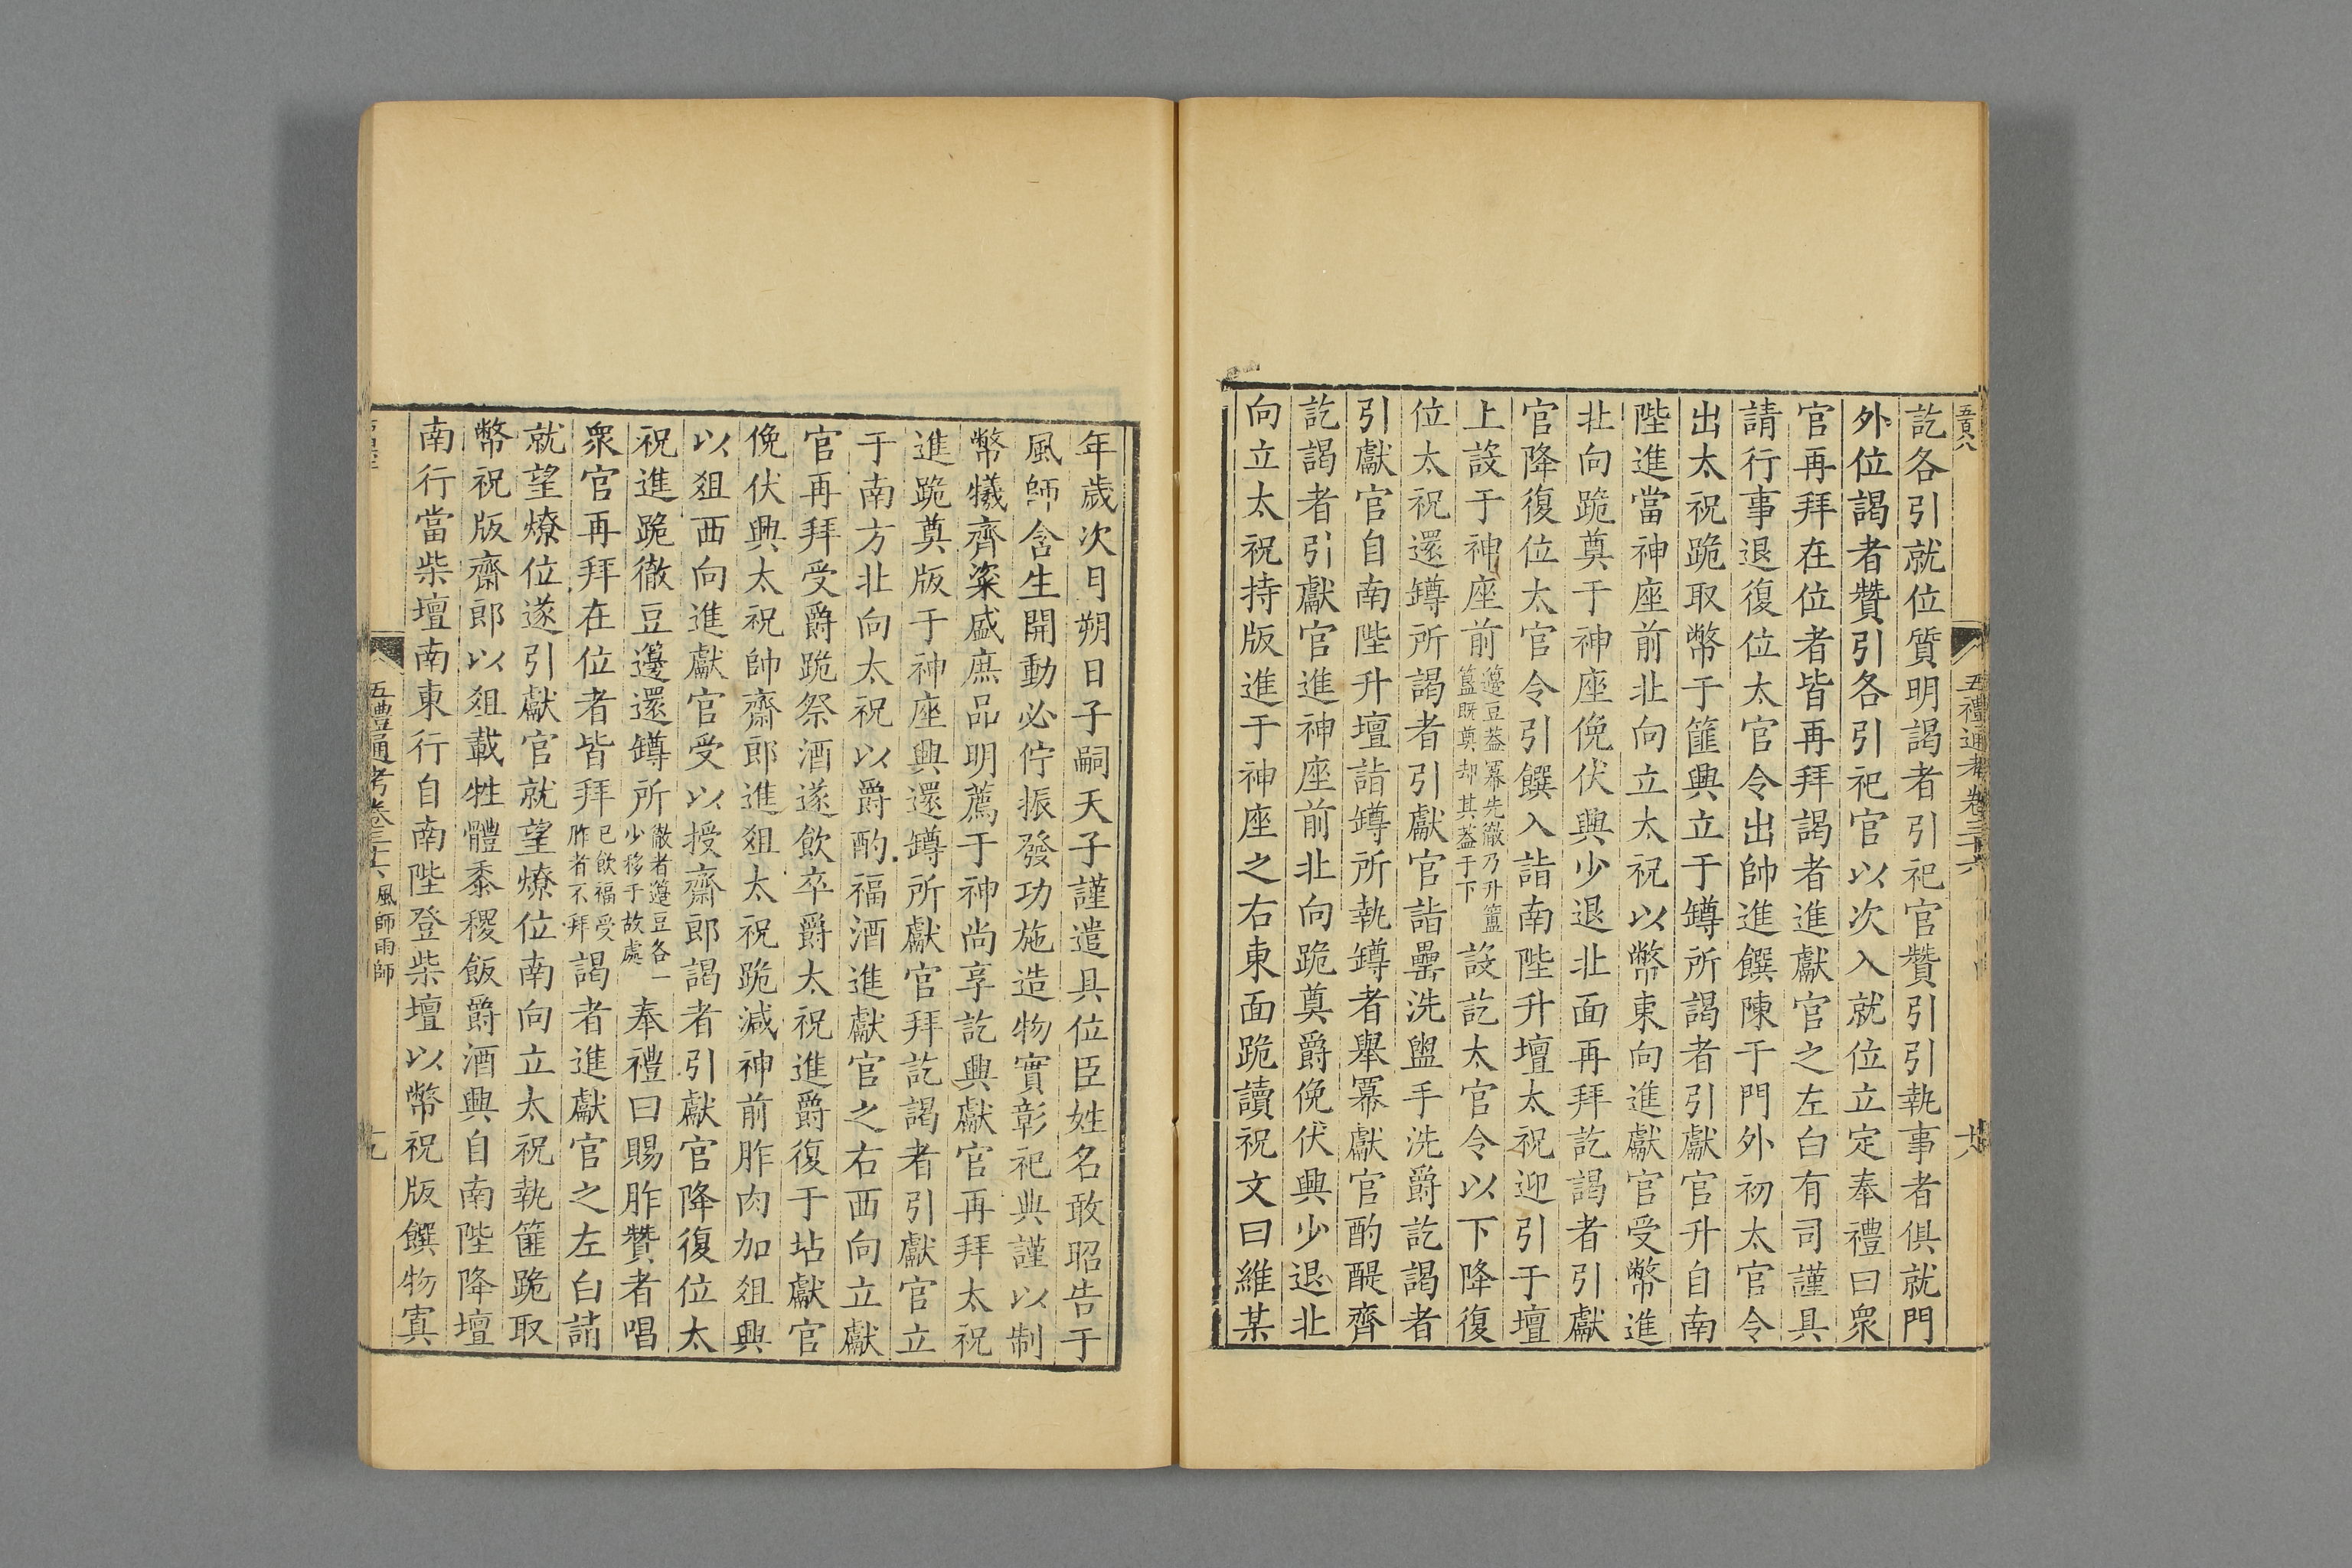 訖各引就位質明謁者引祀官贊引引執事者俱就門
外位謁者贊引各引祀官以次入就位立定奉禮曰衆
官再拜在位者皆再拜謁者進獻官之左白有司謹具
請行事退復位太官令出帥進饌陳于門外初太官令
出太祝跪取幣于篚興立于罇所謁者引獻官升自南
陛進當神座前北向立太祝以幣東向進獻官受幣進
北向跪奠于神座俛伏興少退北面再拜訖謁者引獻
官降復位太官令引饌入詣南陛升壇太祝迎引于壇
上設于神座前籩豆葢冪先徹乃升簠簋既奠却其葢于下設訖太官令以下降復
位太祝還罇所謁者引獻官詣罍洗盥手洗爵訖謁者
引獻官自南陛升壇詣罇所執罇者舉冪獻官酌醍齊
訖謁者引獻官進神座前北向跪奠爵俛伏興少退北
向立太祝持版進于神座之右東面跪讀祝文曰維某
五禮通考卷三十六
年歲次月朔日子嗣天子謹遣具位臣姓名敢昭告于
風師含生開動必佇振發功施造物實彰祀典謹以制
幣犧齊粢盛庶品明薦于神尚享訖興獻官再拜太祝
進跪奠版于神座興還罇所獻官拜訖謁者引獻官立
于南方北向太祝以爵酌福酒進獻官之右西向立獻
官再拜受爵跪祭酒遂飲卒爵太祝進爵復于坫獻官
俛伏興太祝帥齋郎進俎太祝跪減神前胙肉加俎興
以俎西向進獻官受以授齋郎謁者引獻官降復位太
祝進跪徹豆籩還罇所徹者籩豆各一少移于故處奉禮曰賜胙贊者唱
衆官再拜在位者皆拜已飲福受胙者不拜謁者進獻官之左白請
就望燎位遂引獻官就望燎位南向立太祝執篚跪取
幣祝版齋郎以俎載牲體黍稷飯爵酒興自南陛降壇
南行當柴壇南東行自南陛登柴壇以幣祝版饌物寘
五禮通考卷三十六 風師雨師